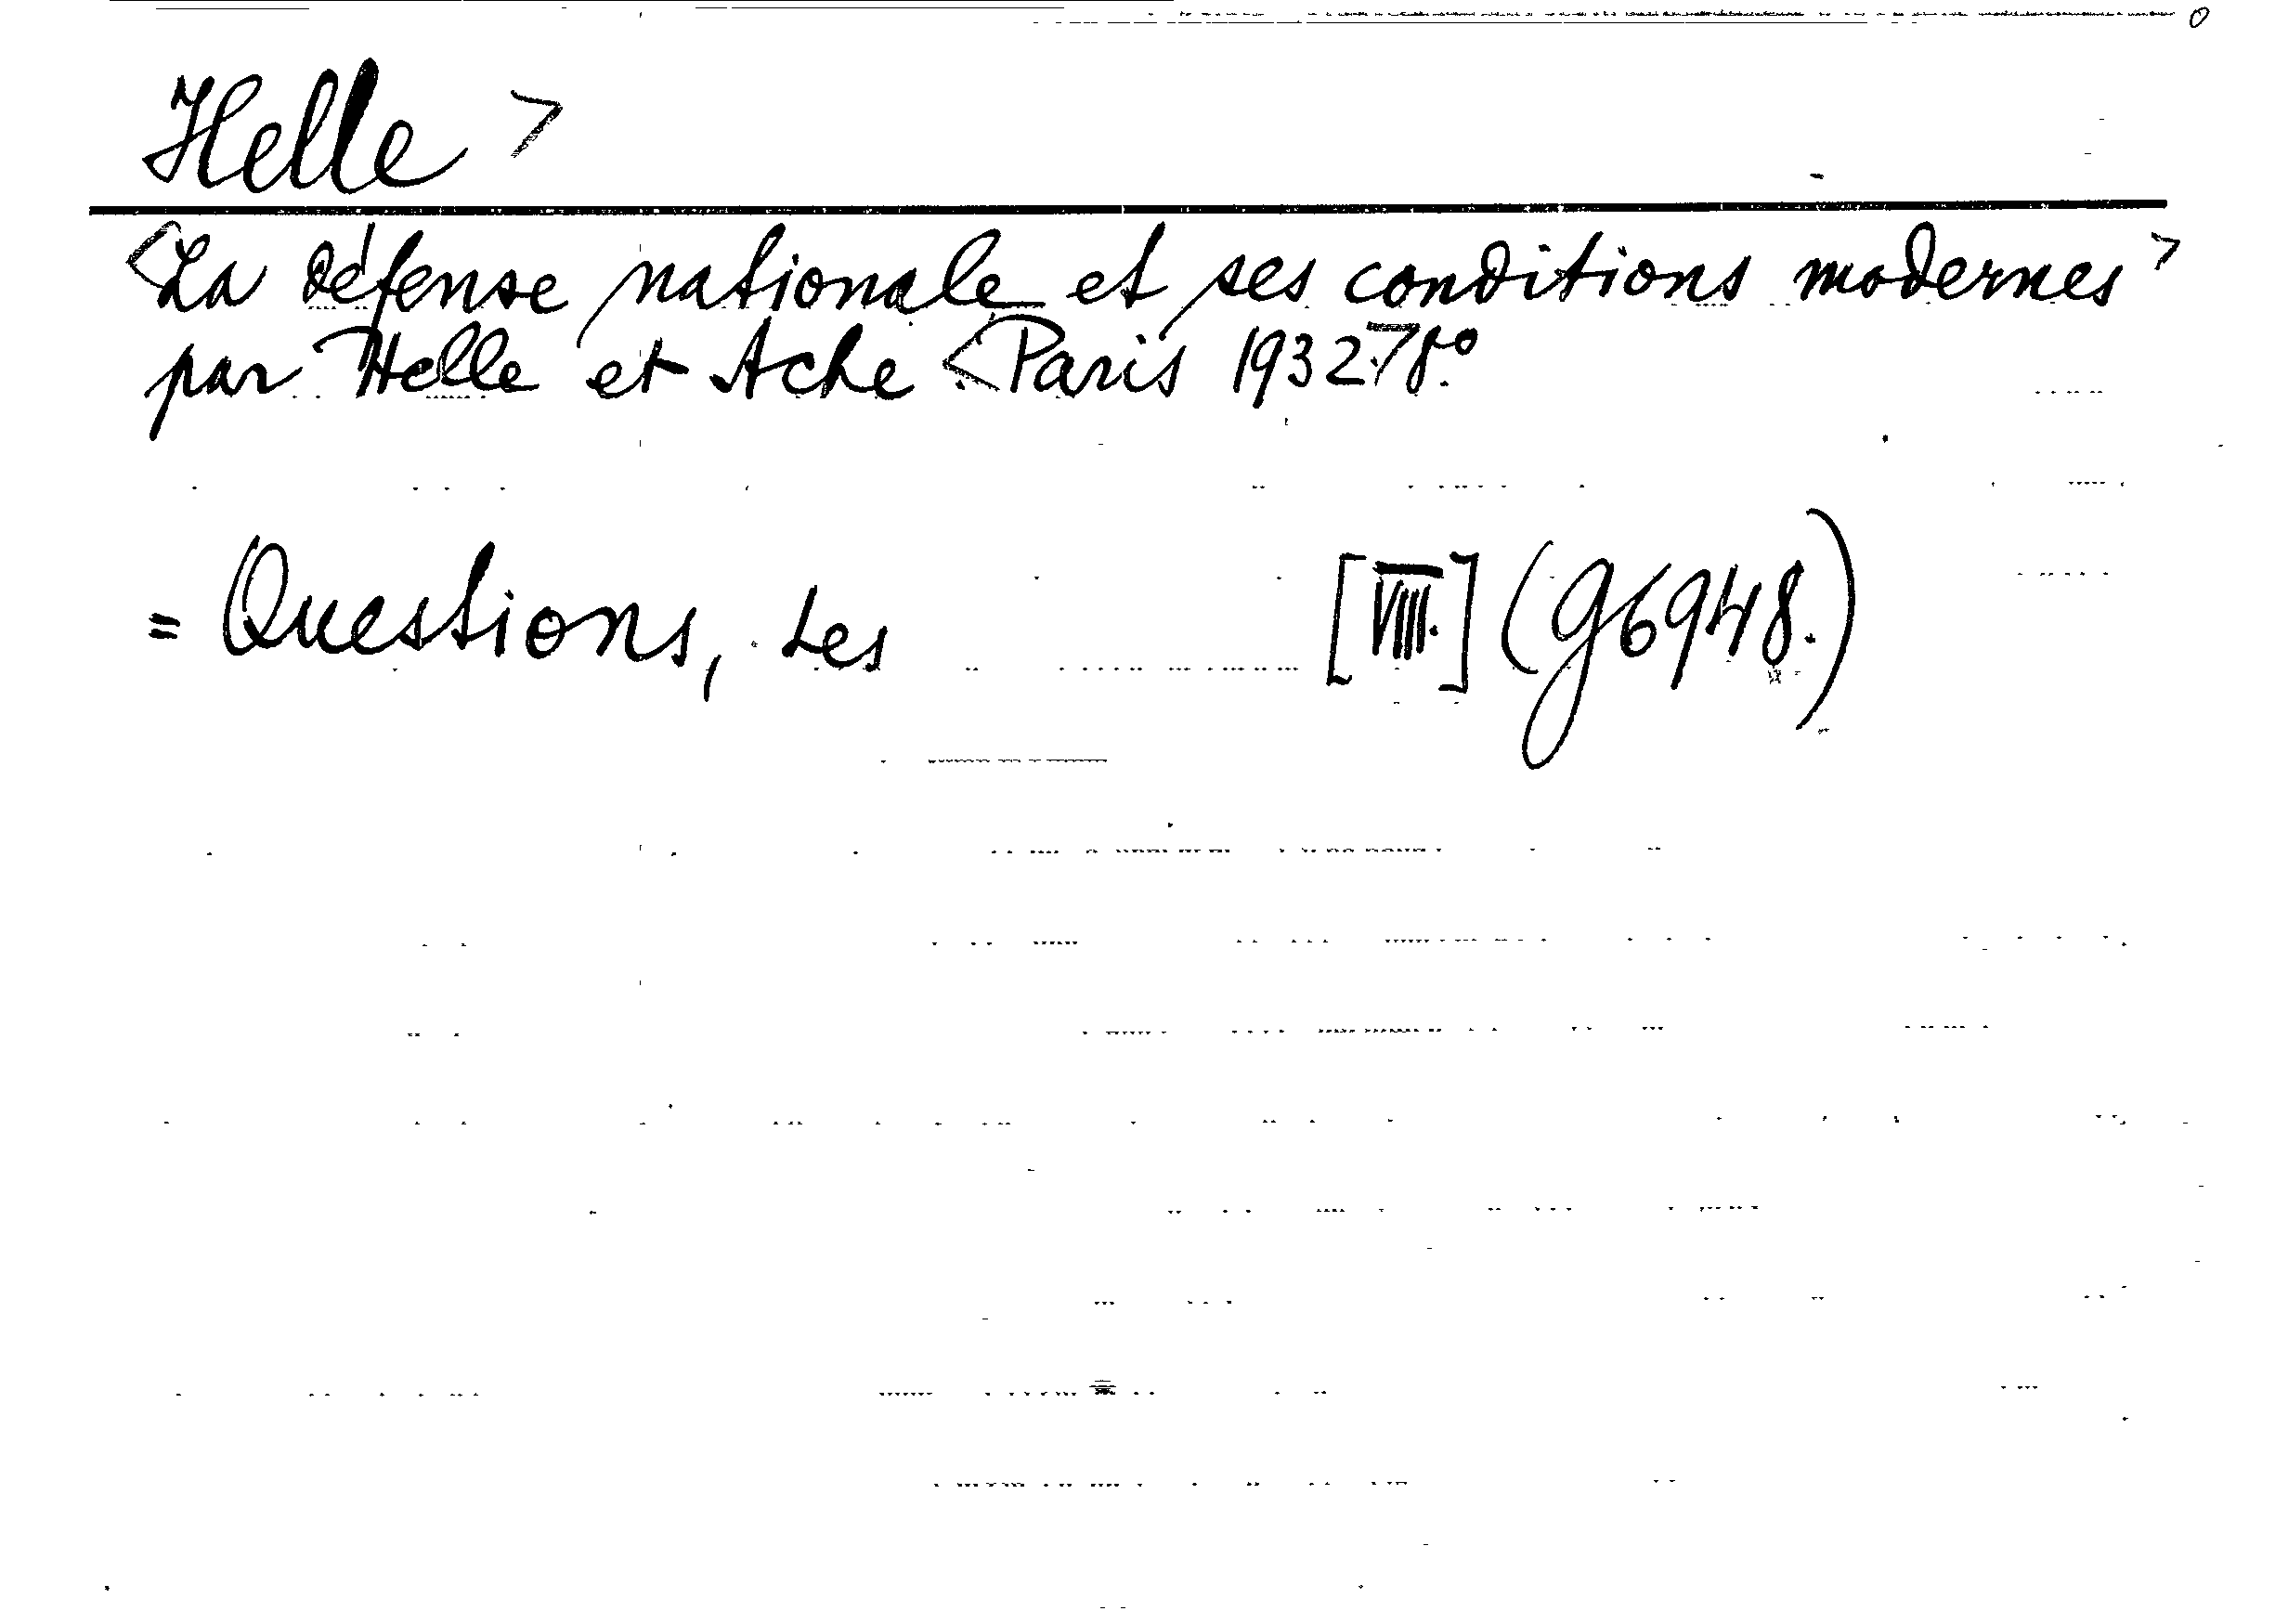 Helle >
<La défense nationale et ses conditions modernes>
par Helle et Ache <Paris 1932> 8.°
= Questions, Les [VIII.] (g6948.)